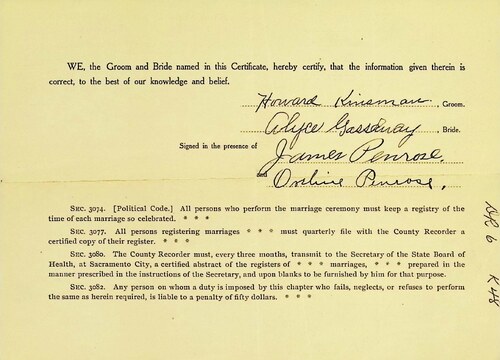 WE, the Groom and Bride named in this Certificate, hereby certify, that the information given therein is
correct, to the best of our knowledge and belief.
Howard Kinsman, Groom.
Alyce Gassaway, Bride.
Signed in the presence of
James Penrose.
and
Penrose.
SEC. 3074. [Political Code.] All persons who perform the marriage ceremony must keep a registry of the
time of each marriage so celebrated. * * *
SEC. 3077. All persons registering marriages * * * must quarterly file with the County Recorder a
certified copy of their register. * * *
SEC. 3080. The County Recorder must, every three months, transmit to the Secretary of the State Board of
Health, at Sacramento City, a certified abstract of the registers of * * * marriages, * * * prepared in the
manner prescribed in the instructions of the Secretary, and upon blanks to be furnished by him for that purpose.
SEC. 3082. Any person on whom a duty is imposed by this chapter who fails, neglects, or refuses to perform
the same as herein required, is liable to a penalty of fifty dollars. * * *